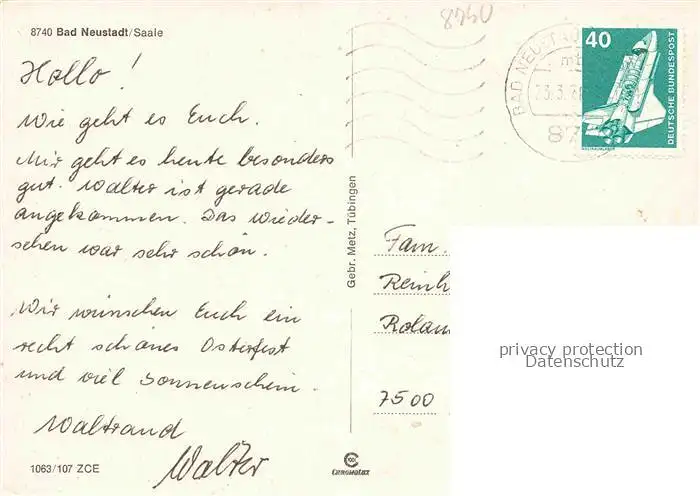 8740 Bad Neustadt/Saale
8740
Hallo!
Wie geht es Euch.
Mir geht es heute besonders
gut. Walter ist gerade
angekommen. Das Wieder-
sehen war sehr schön.
Wir wünschen Euch ein
recht schönes Osterfest
und viel Sonnenschein.
Waltraud
Walter
1063/107 ZCE
Gebr. Metz, Tübingen
CHROMOLUX
BAD NEUSTADT
23.3.78
87
40
DEUTSCHE BUNDESPOST
Fam.
Reinh
Rolan
7500
privacy protection
Datenschutz